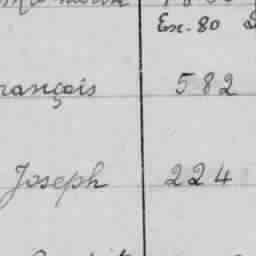 Ex. 80
rançois 582
Joseph 224